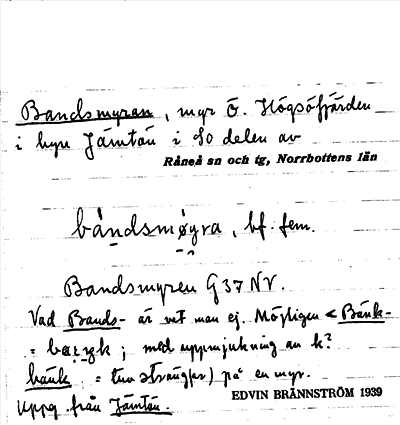 Bandsmyran, myr Ö. Högsöfjärden
i byn Jämtön i SO delen av
Råneå sn och tg, Norrbottens län
båndsmøyra, bf. fem.
Bandsmyren G 37 NV.
Vad Bands- är vet man ej. Möjligen < Bänk-
= ; med uppmjukning av k?
bänk = tuv sträng(ar) på en myr.
Uppg. från Jämtön.
EDVIN BRÄNNSTRÖM 1939